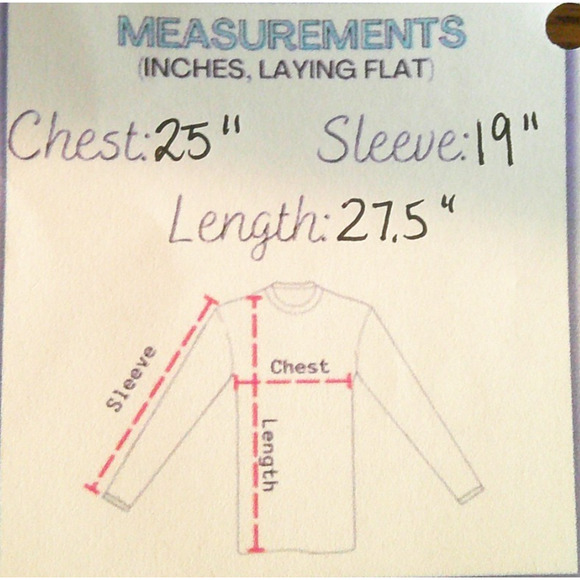 MEASUREMENTS
(INCHES, LAYING FLAT)
Chest: 25" Sleeve: 19"
Length: 27.5"
Sleeve
Chest
Length